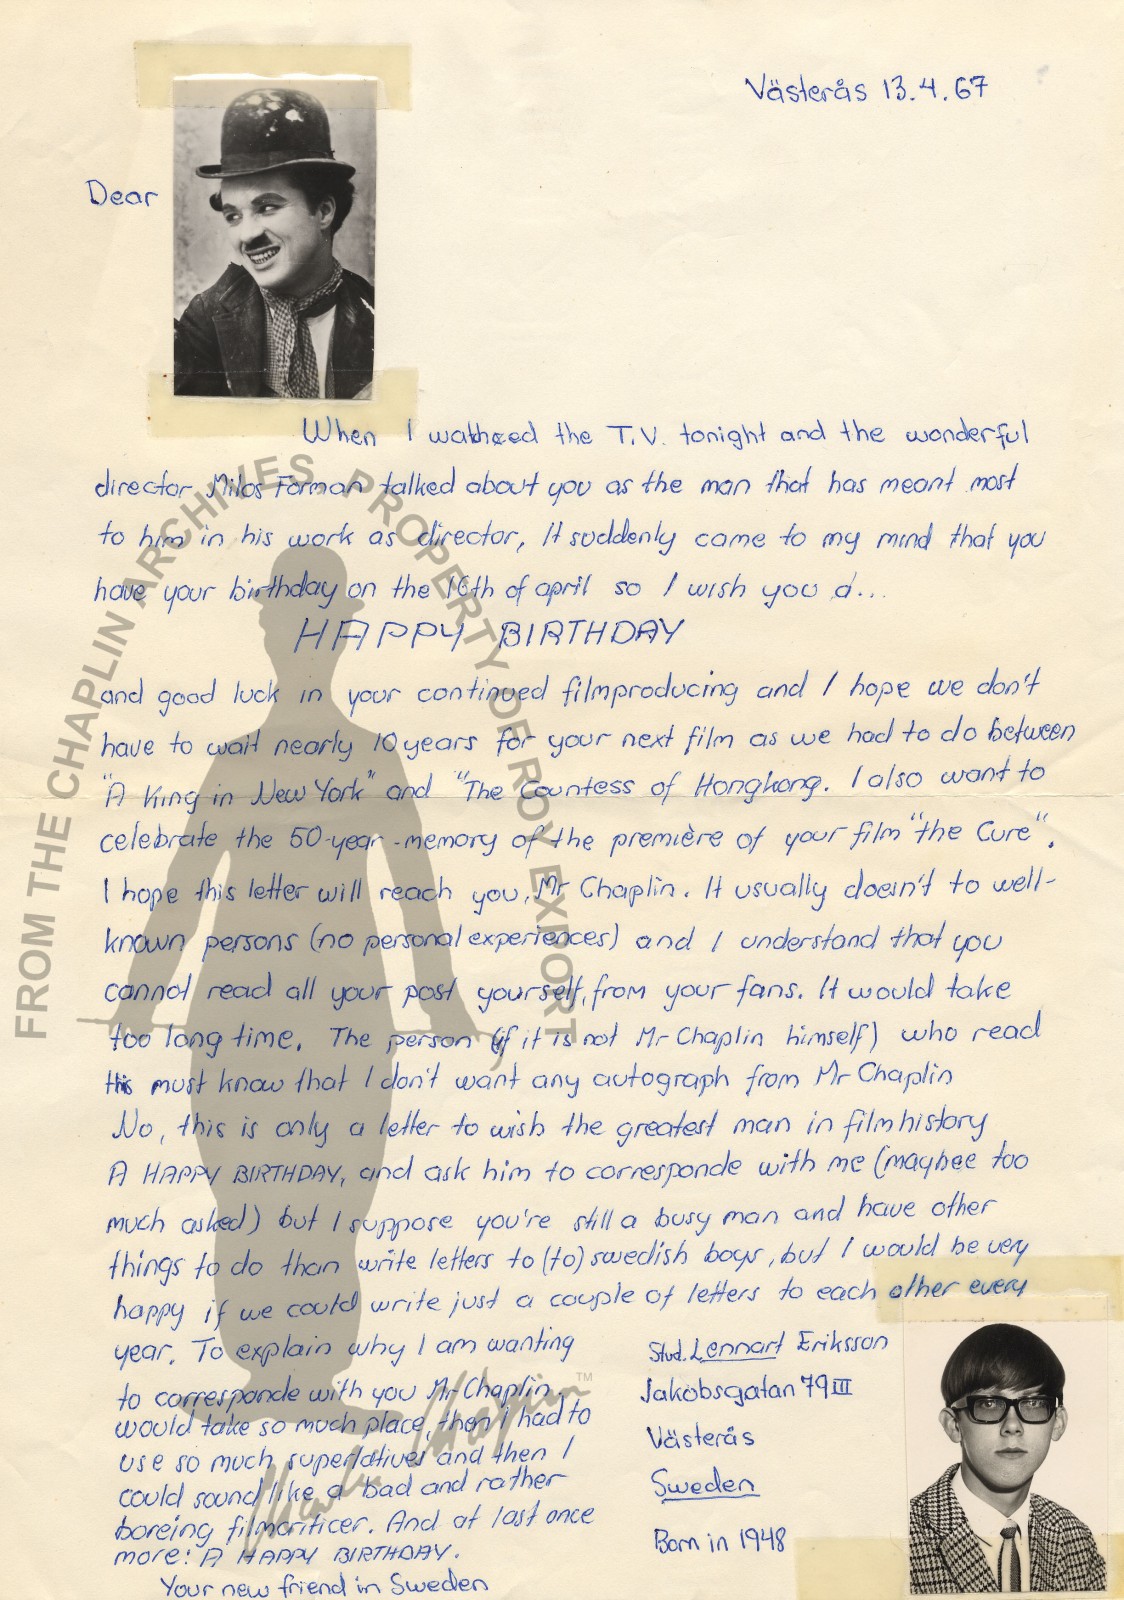 Västerås 13.4.67
Dear
When I wathced the T.V. tonight and the wonderful
director Milos Forman talked about you as the man that has meant most
to him in his work as director, It suddenly came to my mind that you
have your birthday on the 16th of april so I wish you a...
HAPPY BIRTHDAY
and good luck in your continued filmproducing and I hope we don't
have to wait nearly 10 years for your next film as we had to do between
"A King in New York" and "The Countess of Hongkong. I also want to
celebrate the 50-year-memory of the première of your film "the Cure".
I hope this letter will reach you, Mr Chaplin. It usually doesn't to well-
known persons (no personal experiences) and I understand that you
cannot read all your post yourself, from your fans. It would take
too long time. The person (if it is not Mr Chaplin himself) who read
this must know that I don't want any autograph from Mr Chaplin
No, this is only a letter to wish the greatest man in filmhistory
A HAPPY BIRTHDAY, and ask him to corresponde with me (maybee too
much asked) but I suppose you're still a busy man and have other
things to do than write letters to (to) swedish boys, but I would be very
happy if we could write just a couple of letters to each other every
year. To explain why I am wanting
to corresponde with you Mr Chaplin,
would take so much place, then I had to
use so much superlatives and then I
could sound like a bad and rather
boreing filmcriticer. And at last once
more: A HAPPY BIRTHDAY.
Your new friend in Sweden
Stud. Lennart Eriksson
Jakobsgatan 79 III
Västerås
Sweden
Born in 1948
FROM THE CHAPLIN ARCHIVES, PROPERTY OF ROY EXPORT
Charlie Chaplin ™